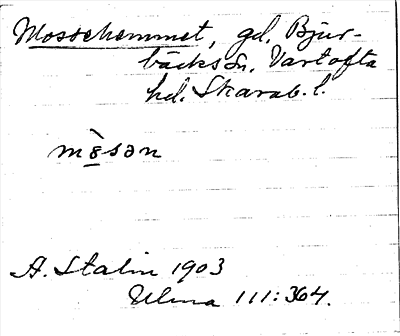 Mossehemmet, gd. Bjur-
bäcks sn. Vartofta
hd. Skarab. l.
mò̱sən
A. Stalin 1903
Ulma 111:364.